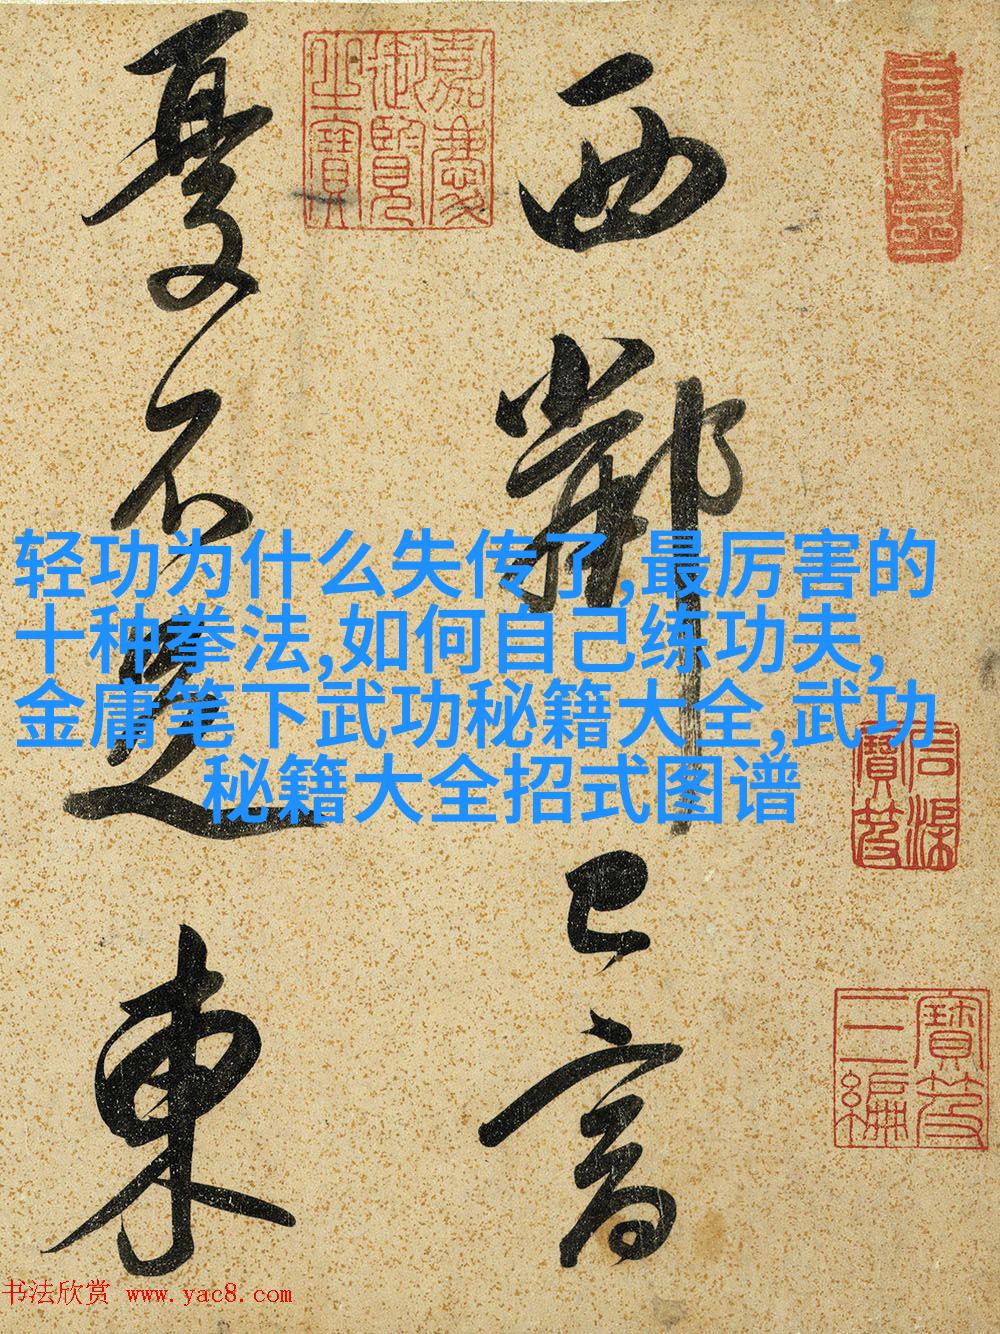 西鄰已富
憂不足東
嘉慶御覽之寶
石渠寶笈
寶笈三編
轻功为什么失传了,最厉害的
十种拳法,如何自己练功夫,
金庸笔下武功秘籍大全,武功
秘籍大全招式图谱
书法欣赏 www.yac8.com